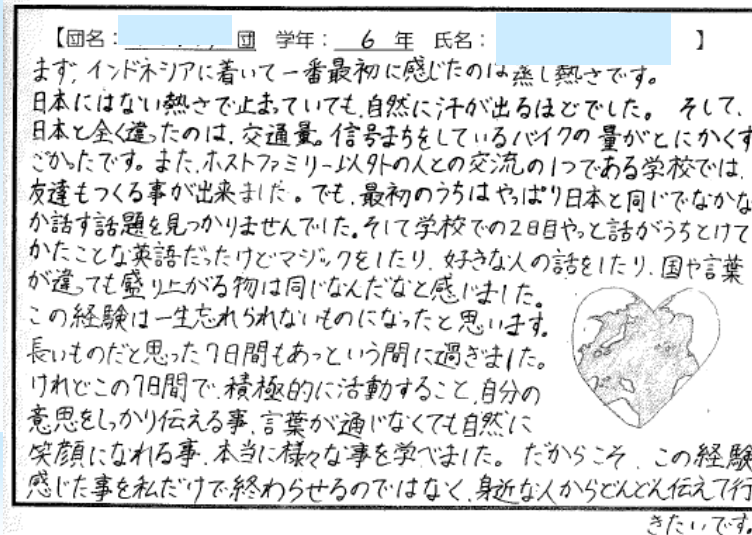 【団名： 団 学年： 6 年 氏名： 】
まず、インドネシアに着いて一番最初に感じたのは蒸し熱さです。
日本にはない熱さで止まっていても、自然に汗が出るほどでした。 そして、
日本と全く違ったのは、交通量。信号まちをしているバイクの量がとにかくす
ごかったです。また、ホストファミリー以外の人との交流の1つである学校では、
友達もつくる事が出来ました。でも、最初のうちはやっぱり日本と同じでなかな
か話す話題を見つかりませんでした。そして学校での2日目やっと話がうちとけて
かたことな英語だったけどマジックをしたり、好きな人の話をしたり、国や言葉
が違っても盛り上がる物は同じなんだなと感じました。
この経験は一生忘れられないものになったと思います。
長いものだと思った7日間もあっという間に過ぎました。
けれどこの7日間で、積極的に活動すること、自分の
意思をしっかり伝える事、言葉が通じなくても自然に
笑顔になれる事、本当に様々な事を学べました。 だからこそ、この経験
感じた事を私だけで終わらせるのではなく、身近な人からどんどん伝えて行
きたいです。